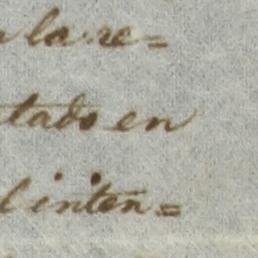 n la re=
tado en
l inten=